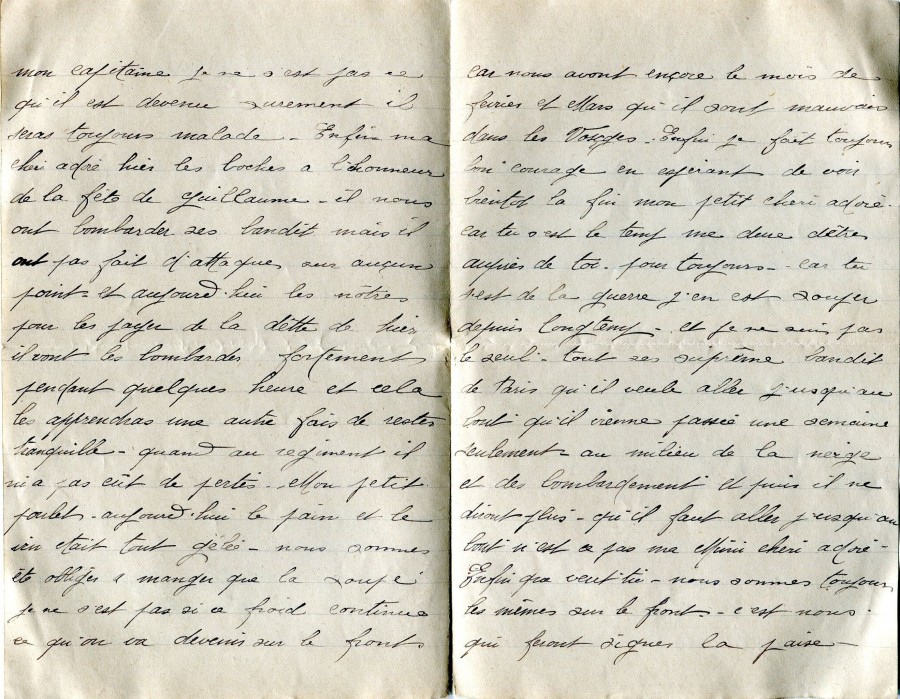 mon capitaine je ne s'est pas ce
qu'il est devenu surement il
seras toujours malade - Enfin ma
cheri adoré hier les boches a l'honneur
de la fête de Guillaume - il nous
ont bombarder ses bandit mais il
ont pas fait d'attaques sur auçun
point - et aujourd'hui les nôtres
pour les payer de la dette de hier
il vont les bombardes fortement
pendant quelques heure et cela
les apprendras une autre fois de restes
tranquille - quand au regiment il
n'a pas eût de pertes - Mon petit
poulet - aujourd'hui le pain et le
vin etait tout gélés - nous sommes
été obliger a manger que la soupe
je ne s'est pas si ce froid continue
ce qu'on va devenir sur le fronts
car nous avont ençore le mois de
fevrier et Mars qu'il sont mauvais
dans les Vosges - Enfin je fait toujours
bon courage en esperant de voir
bientot la fin mon petit cheri adoré -
car tu s'est le temp me dure d'êtres
aupres de toi - pour toujours - car tu
s'est de la guerre j'en est souper
depuis longtemp - et je ne suis pas
le seul - tout ses suprême bandit
de Paris qu'il veule aller jusqu'au
bout qu'il vienne passée une semaine
seulement - au milieu de la neige
et des bombardement et puis il ne
diront plus - qu'il faut aller jusqu'au
bout n'est ce pas ma Mimi cheri adoré -
Enfin que veut tu - nous sommes toujours
les mêmes sur le front - c'est nous
qui feront signer la paise -